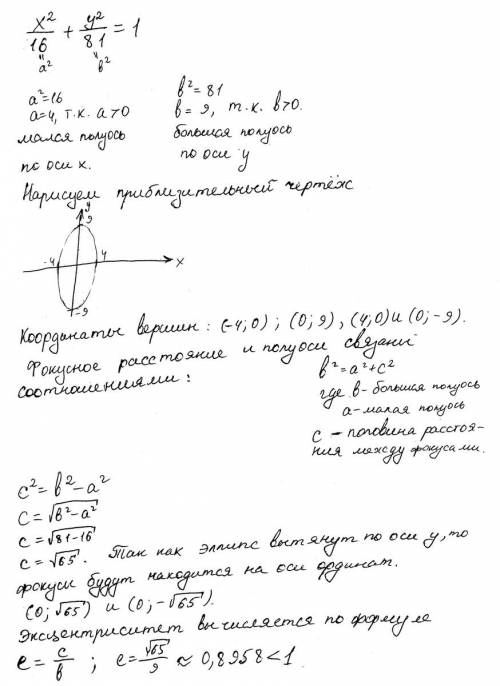 x²/16 + y²/81 = 1
a² b²
a²=16
a=4, т.к. a>0
малая полуось
по оси x.
b²=81
b=9, т.к. b>0.
большая полуось
по оси y
Нарисуем приблизительный чертёж
y
9
-4 4 x
-9
Координаты вершин: (-4;0); (0;9), (4;0) и (0;-9).
Фокусное расстояние и полуоси связаны
соотношениями:
b²=a²+c²
где b-большая полуось
a-малая полуось
c - половина расстоя-
ния между фокусами.
c²=b²-a²
c=√(b²-a²)
c=√(81-16)
c=√65. Так как эллипс вытянут по оси y, то
фокусы будут находится на оси ординат.
(0;√65) и (0;-√65).
Эксцентриситет вычисляется по формуле
e=c/b; e=√65/9≈0,8958<1.